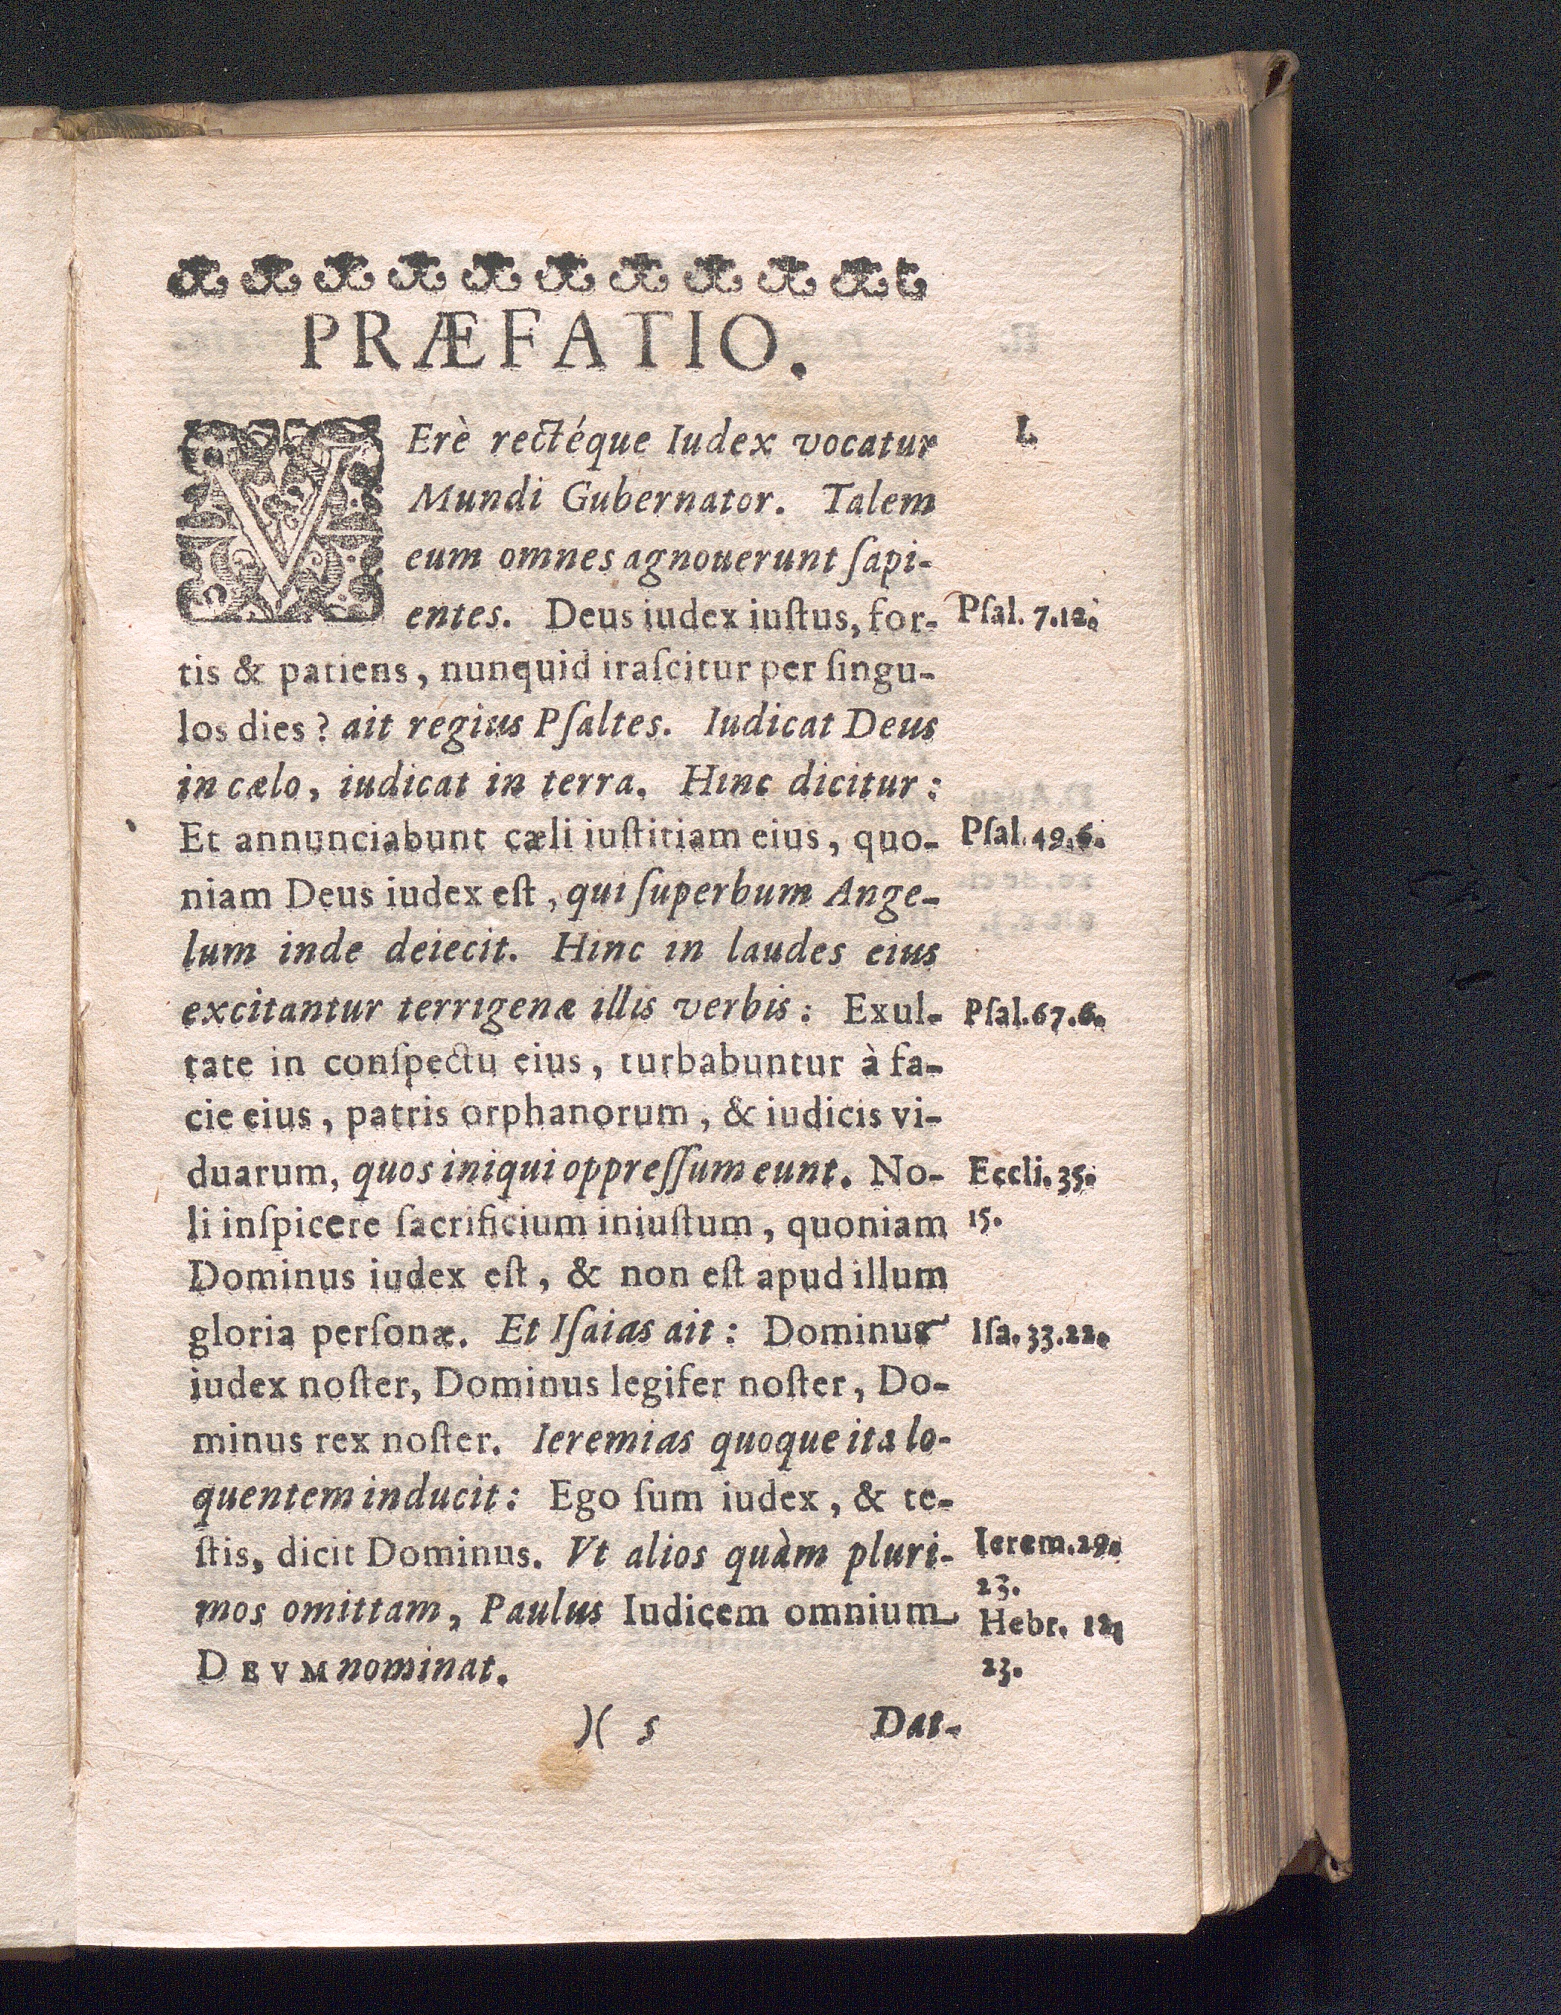 PRÆFATIO.
VErè rectéque Iudex vocatur
I.
Mundi Gubernator. Talem
eum omnes agnouerunt ſapi-
entes. Deus iudex iuſtus, for-
Pſal. 7.12.
tis & patiens, nunquid iraſcitur per ſingu-
los dies? ait regius Pſaltes. Iudicat Deus
in cælo, iudicat in terra. Hinc dicitur:
Et annunciabunt cæli iuſtitiam eius, quo-
Pſal. 49.6.
niam Deus iudex eſt, qui ſuperbum Ange-
lum inde deiecit. Hinc in laudes eius
excitantur terrigenæ illis verbis: Exul-
Pſal. 67.6.
tate in conſpectu eius, turbabuntur à fa-
cie eius, patris orphanorum, & iudicis vi-
duarum, quos iniqui oppreſſum eunt. No-
Eccli. 35.
li inſpicere ſacrificium iniuſtum, quoniam
15.
Dominus iudex eſt, & non eſt apud illum
gloria perſonæ. Et Iſaias ait: Dominus
Iſa. 33.22.
iudex noſter, Dominus legifer noſter, Do-
minus rex noſter. Ieremias quoque ita lo-
quentem inducit: Ego ſum iudex, & te-
ſtis, dicit Dominus. Vt alios quàm pluri-
Ierem. 29.
23.
mos omittam, Paulus Iudicem omnium
Hebr. 12,
DEVM nominat.
23.
)( 5
Dat-